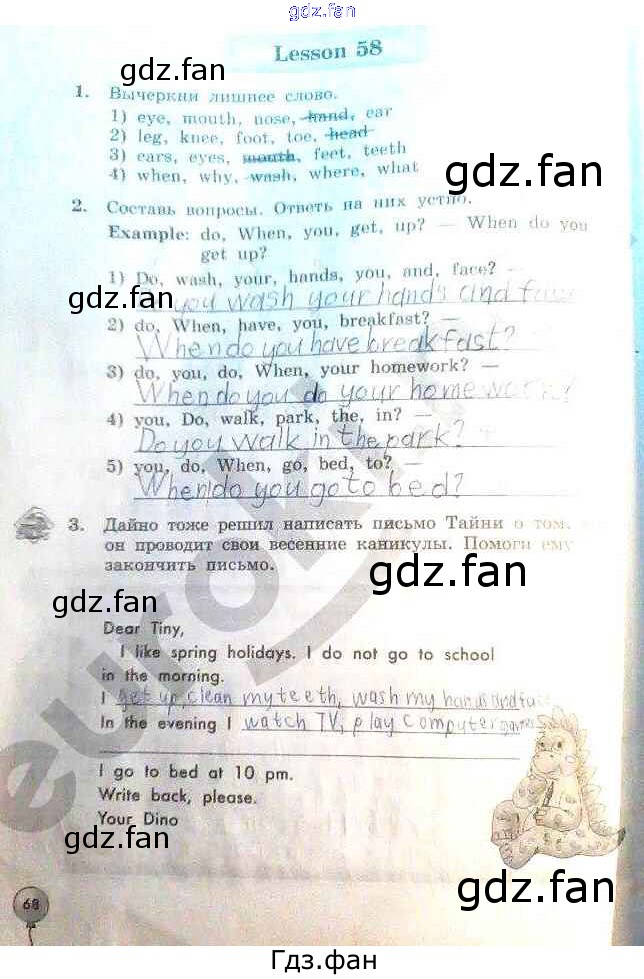 gdz.fan
Lesson 58
gdz.fan
1. Вычеркни лишнее слово.
1) eye, mouth, nose, hand, ear
2) leg, knee, foot, toe, head
3) ears, eyes, mouth, feet, teeth
4) when, why, wash, where, what
gdz.fan
2. Составь вопросы. Ответь на них устно.
Example: do, When, you, get, up? — When do you
get up?
1) Do, wash, your, hands, you, and, face? —
gdz.fan
you wash your hands and face
2) do, When, have, you, breakfast? —
When do you have breakfast?
3) do, you, do, When, your homework? —
When do you do your homework?
4) you, Do, walk, park, the, in? —
Do you walk in the park?
5) you, do, When, go, bed, to? —
When do you go to bed?
3. Дайно тоже решил написать письмо Тайни о том,
он проводит свои весенние каникулы. Помоги ему
закончить письмо.
gdz.fan
gdz.fan
Dear Tiny,
I like spring holidays. I do not go to school
in the morning.
I get up, clean my teeth, wash my hands and face
In the evening I watch TV, play computer games
I go to bed at 10 pm.
Write back, please.
Your Dino
gdz.fan
gdz.fan
68
euroki
Гдз.фан